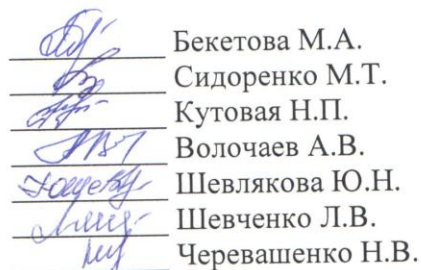 Бекетова М.А.
Сидоренко М.Т.
Кутовая Н.П.
Волочаев А.В.
Шевлякова Ю.Н.
Шевченко Л.В.
Черевашенко Н.В.